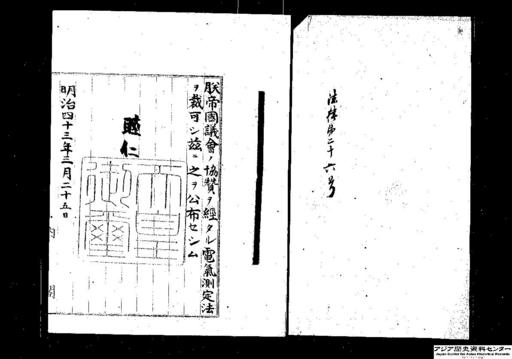 法律第二十六号
朕帝國議會ノ協賛ヲ經タル電氣測定法
ヲ裁可シ茲ニ之ヲ公布セシム
睦仁
天皇御璽
明治四十三年三月二十五日
内閣
アジア歴史資料センター
Japan Center for Asian Historical Records